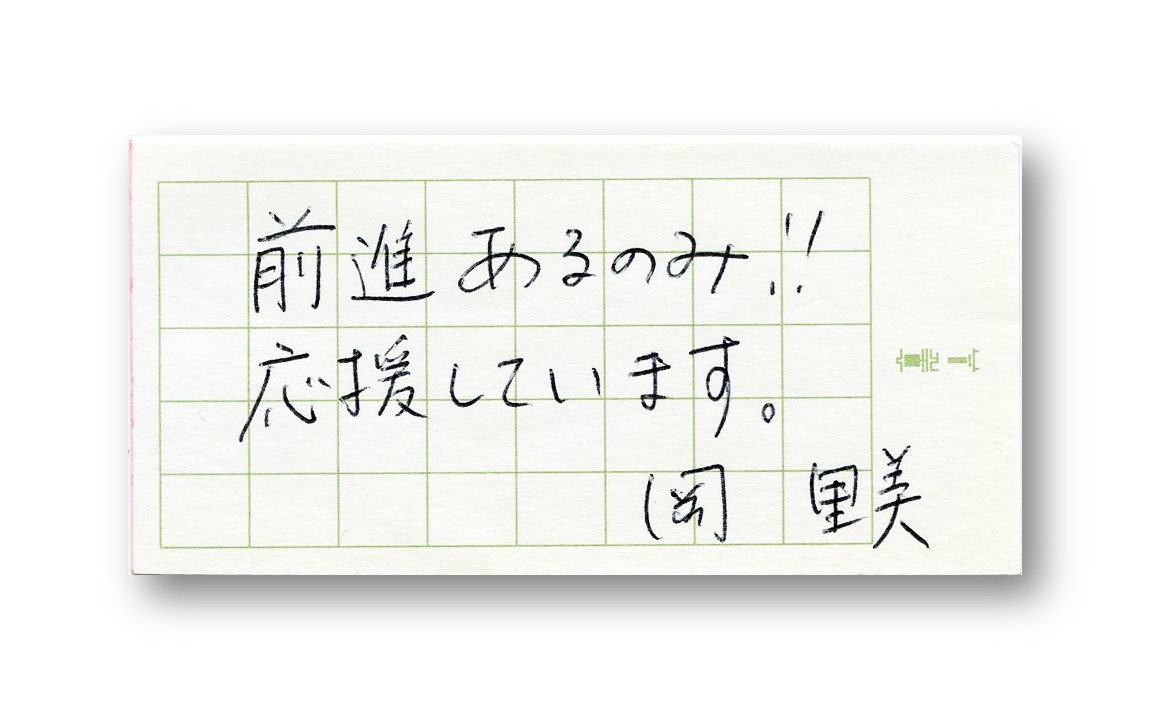 前進あるのみ!!
応援しています。
岡 里美